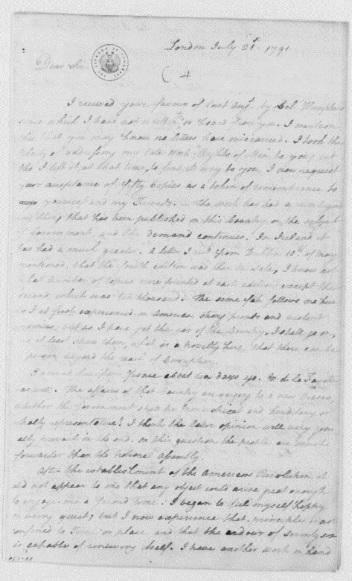 London July 21st 1791
Dear Sir
(4
I received your favour of last Augt. by Col. Humphries
since which I have not written to or heard from you. I mention
this that you may know no letters have miscarried. I took the
liberty of addressing my late work "Rights of Man" to you; but
tho' I left it at that time to find its way to you, I now request
your acceptance of fifty Copies as a token of remembrance to
yourself and my Friends. The work has had a run beyond
any thing that has been published in this Country on the subject
of Government, and the demand continues. In Ireland it
has had a much greater. A letter I recd from Dublin 10th of May
mentioned that the fourth edition was then on sale. I know not
what number of Copies were printed at each edition except the
second, which was ten thousand. The same fate follows me here
as I at first experienced in America, strong friends and violent
enemies, but as I have got the ear of the Country, I shall go on,
and at least shew them, what is a novelty here, that there can be
a person beyond the reach of corruption.
I arrived here from France about ten days ago. M. de la Fayette
is well. The affairs of that Country are verging to a new crisis,
whether the Government shall be Monarchical and hereditary or
wholly representative? I think the latter opinion will very gene-
rally prevail in the end. On this question the people are much
forwarder than the National Assembly.
After the establishment of the American Revolution it
did not appear to me that any object could arise great enough
to engage me a second time. I began to feel myself happy
in being quiet; but I now experience that principle is not
confined to Time or place, and that the ardour of Seventy-six
is capable of renewing itself. I have another work on hand